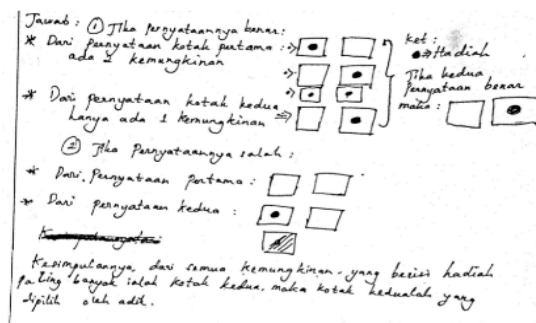 Jawab : ① Jika pernyataannya benar:
* Dari pernyataan kotak pertama :⇒
ada 2 kemungkinan
* Dari pernyataan kotak kedua
hanya ada 1 kemungkinan ⇒
ket :
●⇒ Hadiah
Jika kedua
pernyataan benar
maka :
② Jika Pernyataannya salah :
* Dari Pernyataan Pertama :
* Dari pernyataan kedua :
Kesimpulannya, dari semua kemungkinan, yang berisi hadiah
paling banyak ialah kotak kedua, maka kotak kedualah yang
dipilih oleh adik.